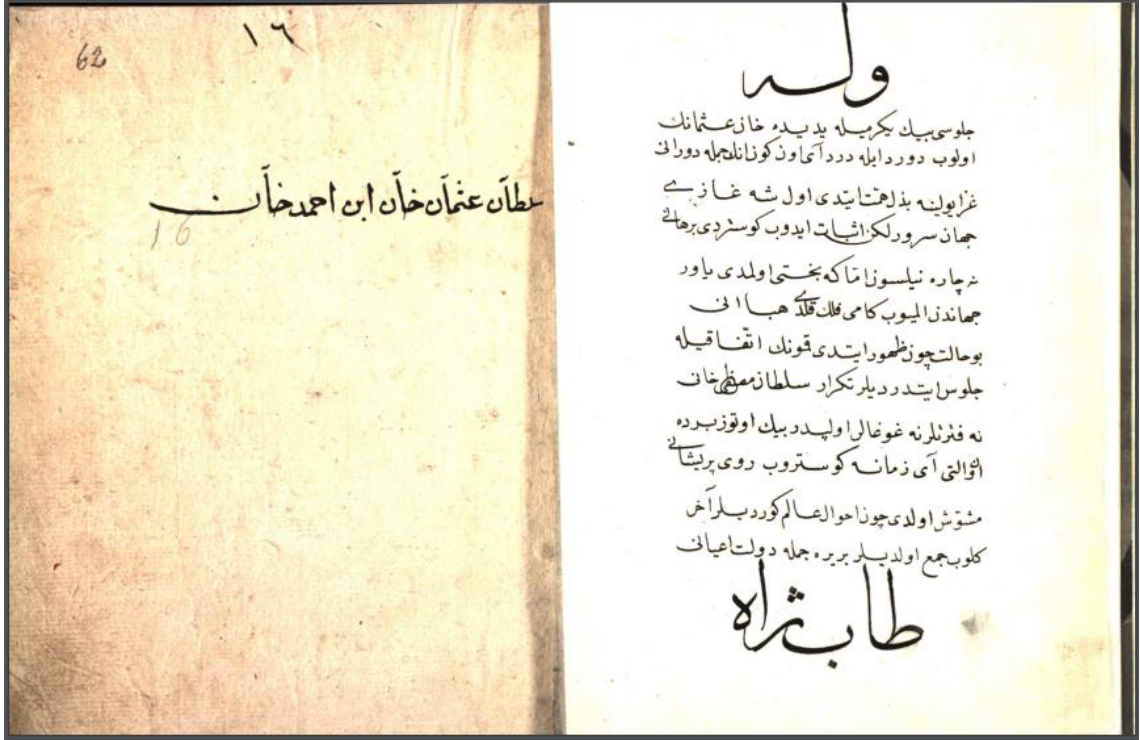 ١٦
62
سلطان عثمان خان ابن احمد خان
16
وله
جلوسی بیك یكرمیله یدیده خان عثمانك
اولوب دورد ایله درد آی اون كون انك جمله دورانی
غزا یولینه بذل همت ایتدی اول شه غازی
جهان سرورلكن اثبات ایدوب كوستردی برهانی
نه چاره نیلسون اما كه بختی اولمدی یاور
جهاندن المیوب كامی فلك قلدی هبا انی
بو حالت چون ظهور ایتدی قونك اتفاقیله
جلوس ایتدردیلر تكرار سلطان مصطفی خانی
نه فترتلر نه غوغالر اولیدر بیك اوتوز برده
اون التی آی زمانه كوستروب روی پریشانی
مشوش اولدی چون احوال عالم كوردیلر آخر
كلوب جمع اولدیلر بریره جمله دولت اعیانی
طاب ثراه